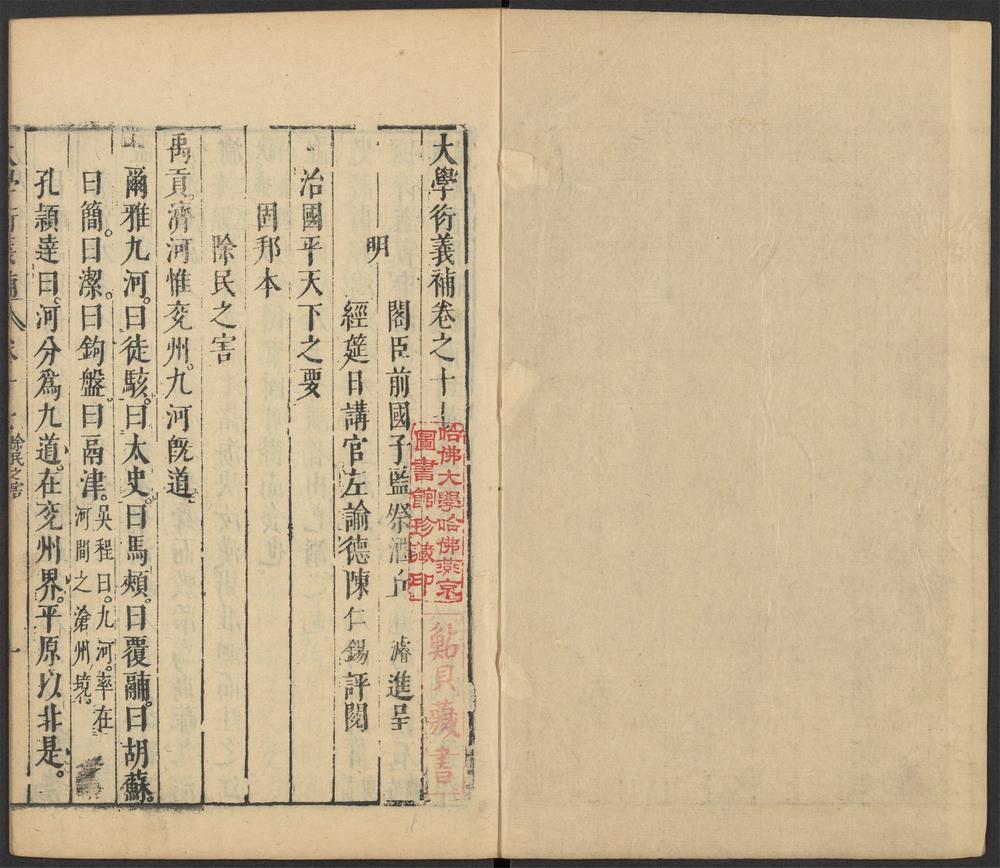 大學衍義補卷之十
明
閣臣前國子監祭酒丘濬進呈
經筵日講官左諭德陳仁錫評閱
治國平天下之要
固邦本
除民之害
禹貢。濟河惟兗州。九河旣道
爾雅九河。曰徒駭。曰太史。曰馬頰。曰覆鬴。曰胡蘇。
曰簡。曰潔。曰鉤盤。曰鬲津。吳程曰。九河。率在
河間之滄州境。
孔頴達曰。河分爲九道。在兗州界。平原以北是。
大學衍義補
除民之害
哈佛大學哈佛燕京
圖書館珍藏印
貝藏書